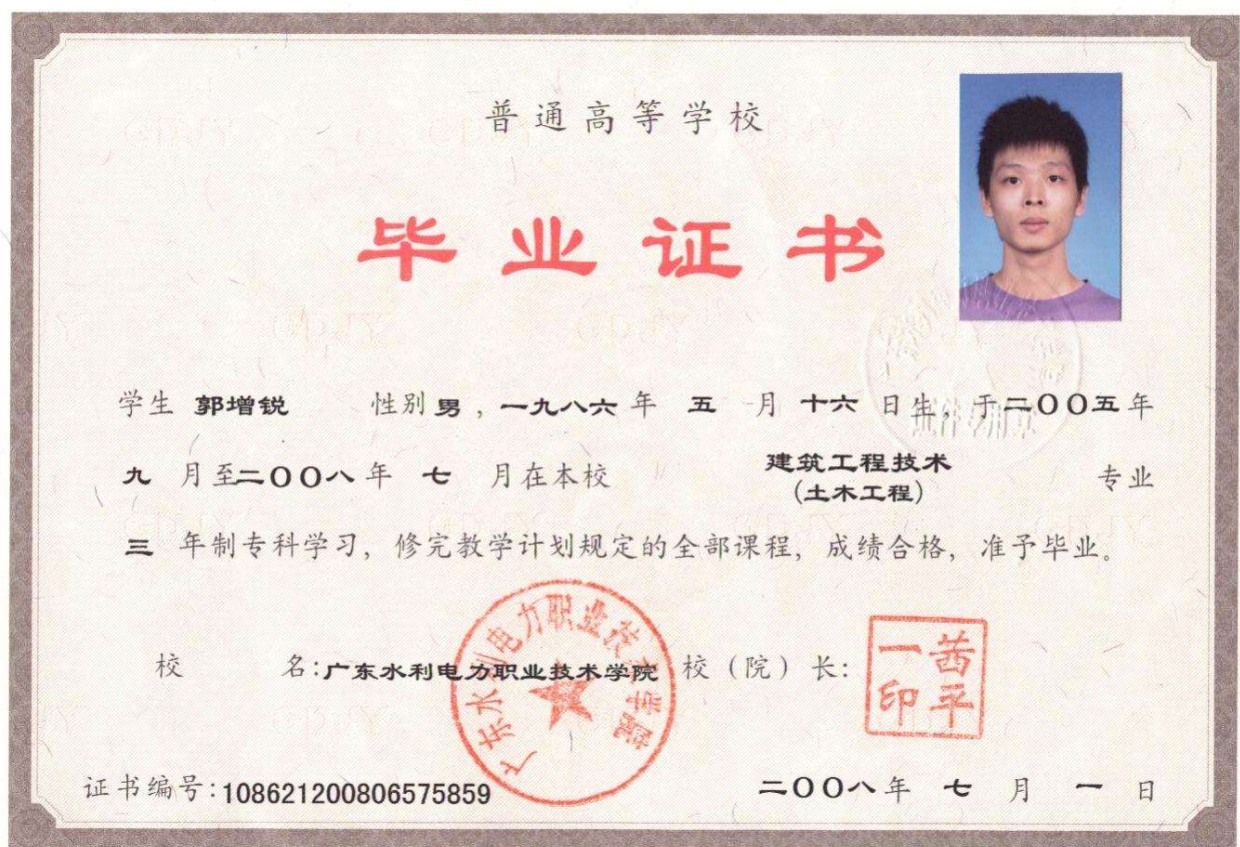 普通高等学校
毕业证书
学生 郭增锐 性别 男，一九八六 年 五 月 十六 日生，于二〇〇五年
九 月至二〇〇八年 七 月在本校 建筑工程技术 (土木工程) 专业
三 年制专科学习，修完教学计划规定的全部课程，成绩合格，准予毕业。
校 名：广东水利电力职业技术学院 校（院）长：
广东水利电力职业技术学院
茜平一印
证书编号：108621200806575859 二〇〇八年 七 月 一 日